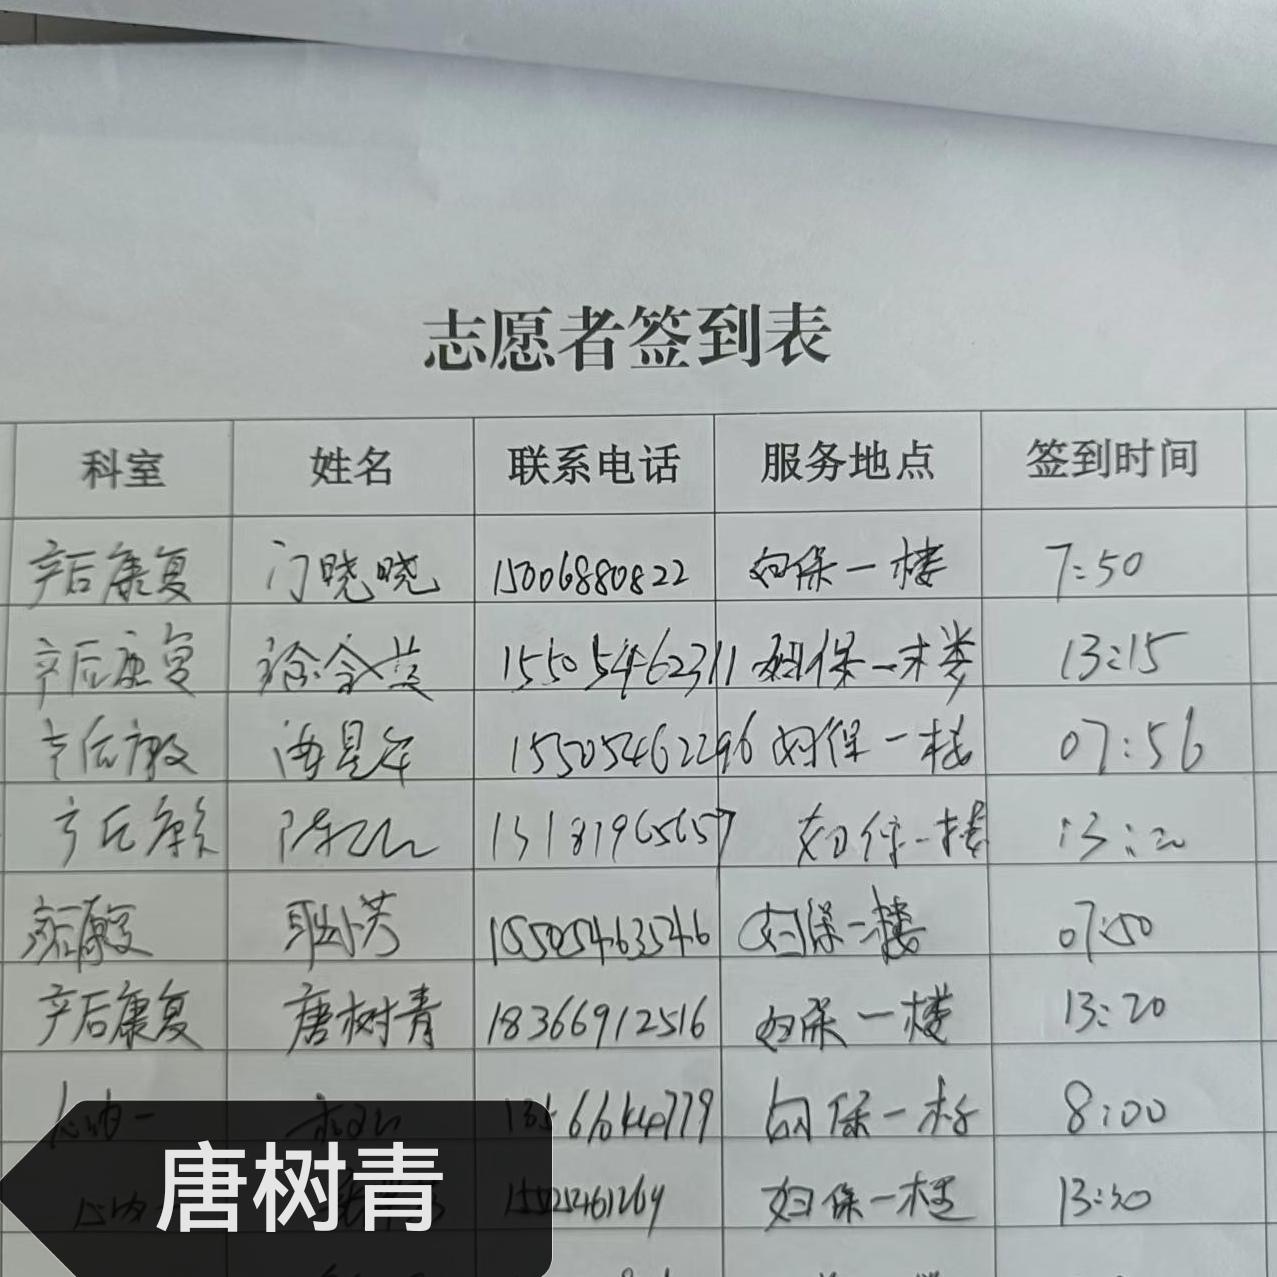 志愿者签到表
科室 姓名 联系电话 服务地点 签到时间
产后康复 门晓晓 15006880822 妇保一楼 7:50
产后康复 徐金芝 15505462311 妇保一楼 13:15
产后康复 15505462296 妇保一楼 07:56
产后康复 13181965657 妇保一楼 13:20
产后康复 耿小芳 15505463546 妇保一楼 07:50
产后康复 唐树青 18366912516 妇保一楼 13:20
妇保一楼 8:00
妇保一楼 13:30
唐树青